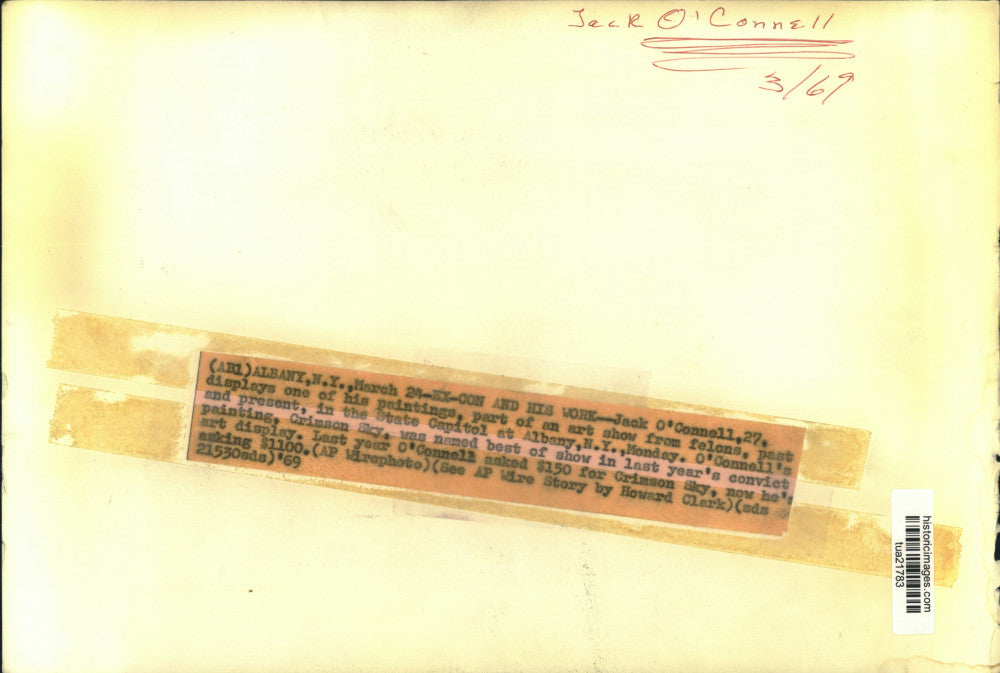 Jack O'Connell
3/69
(AB1)ALBANY,N.Y.,March 24—EX-CON AND HIS WORK—Jack O'Connell,27,
displays one of his paintings, part of an art show from felons, past
and present, in the State Capitol at Albany,N.Y.,Monday. O'Connell's
painting, Crimson Sky, was named best of show in last year's convict
art display. Last year O'Connell asked $150 for Crimson Sky, now he's
asking $1100.(AP Wirephoto)(See AP Wire Story by Howard Clark)(sds
21530sds)'69
historicimages.com
tua21783